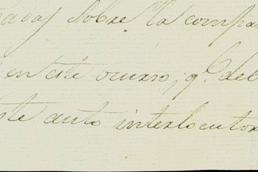 sobre la compa
en este ocurso, q.e del
ste auto interlocutor